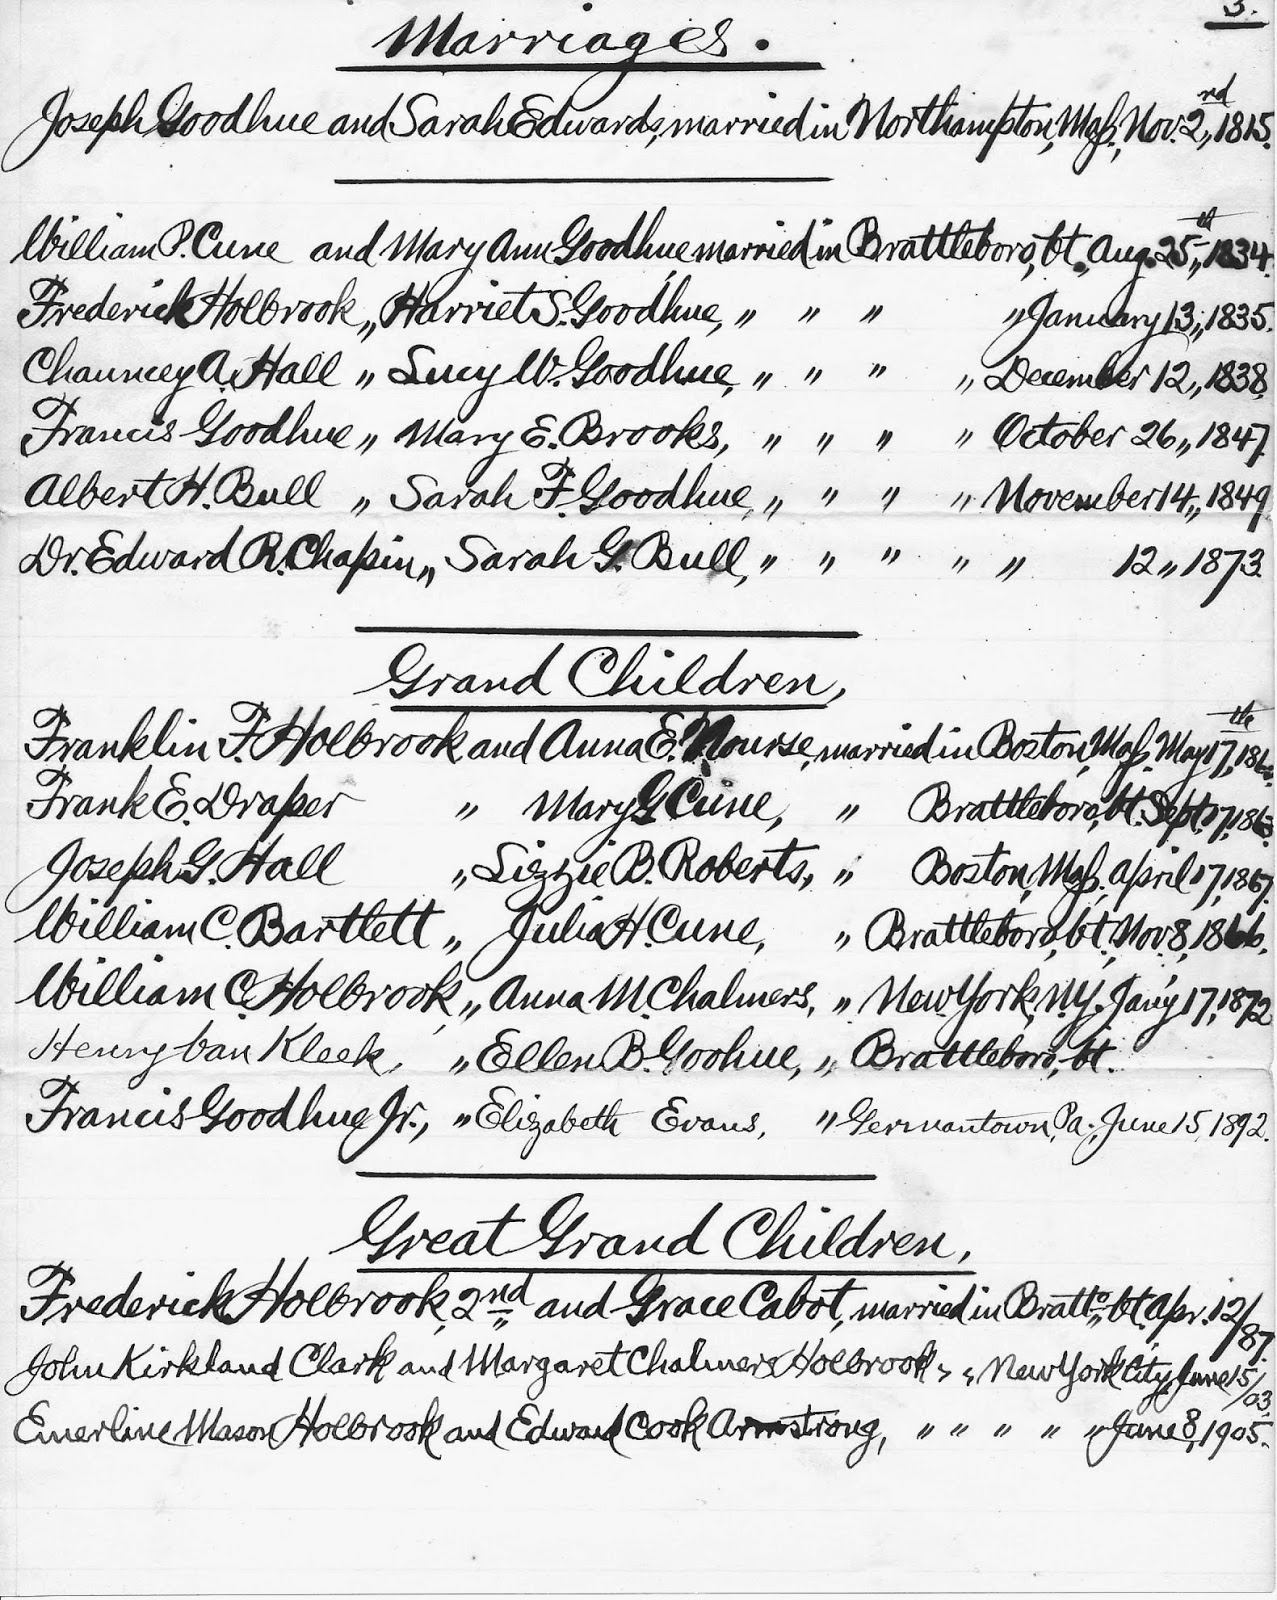 3.
Marriages.
Joseph Goodhue and Sarah Edwards, married in Northampton, Maſs., Nov. 2nd, 1815.
William P. Cune and Mary Ann Goodhue, married in Brattleboro, Vt., Aug. 25th, 1834.
Frederick Holbrook „ Harriet S. Goodhue, „ „ „ „ January 13, 1835.
Chauncey A. Hall „ Lucy W. Goodhue, „ „ „ „ December 12, 1838.
Francis Goodhue „ Mary E. Brooks, „ „ „ „ October 26, 1847.
Albert H. Bull „ Sarah F. Goodhue, „ „ „ „ November 14, 1849
Dr. Edward R. Chapin „ Sarah G. Bull, „ „ „ „ „ 12, 1873.
Grand Children,
Franklin F. Holbrook and Anna E. Nourse, married in Boston, Maſs. May 17th,
Frank E. Draper „ Mary G. Cune, „ Brattleboro, Vt. Sept. 17, 1863.
Joseph G. Hall „ Lizzie B. Roberts, „ Boston, Maſs. April 17, 1867.
William C. Bartlett „ Julia H. Cune, „ Brattleboro, Vt., Nov. 8, 1866.
William C. Holbrook, „ Anna M. Chalmers, „ New York, N.Y. Jan'y 17, 1872
Henry Van Kleek, „ Ellen B. Goohue, „ Brattleboro, Vt.
Francis Goodhue Jr., „ Elizabeth Evans, „ Germantown, Pa. June 15, 1892.
Great Grand Children,
Frederick Holbrook, 2nd and Grace Cabot, married in Bratto, Vt. Apr. 12/87.
John Kirkland Clark and Margaret Chalmers Holbrook „ „ New York City, June 15/03.
Emerline Mason Holbrook and Edward Cook Armstrong, „ „ „ „ „ June 8, 1905.